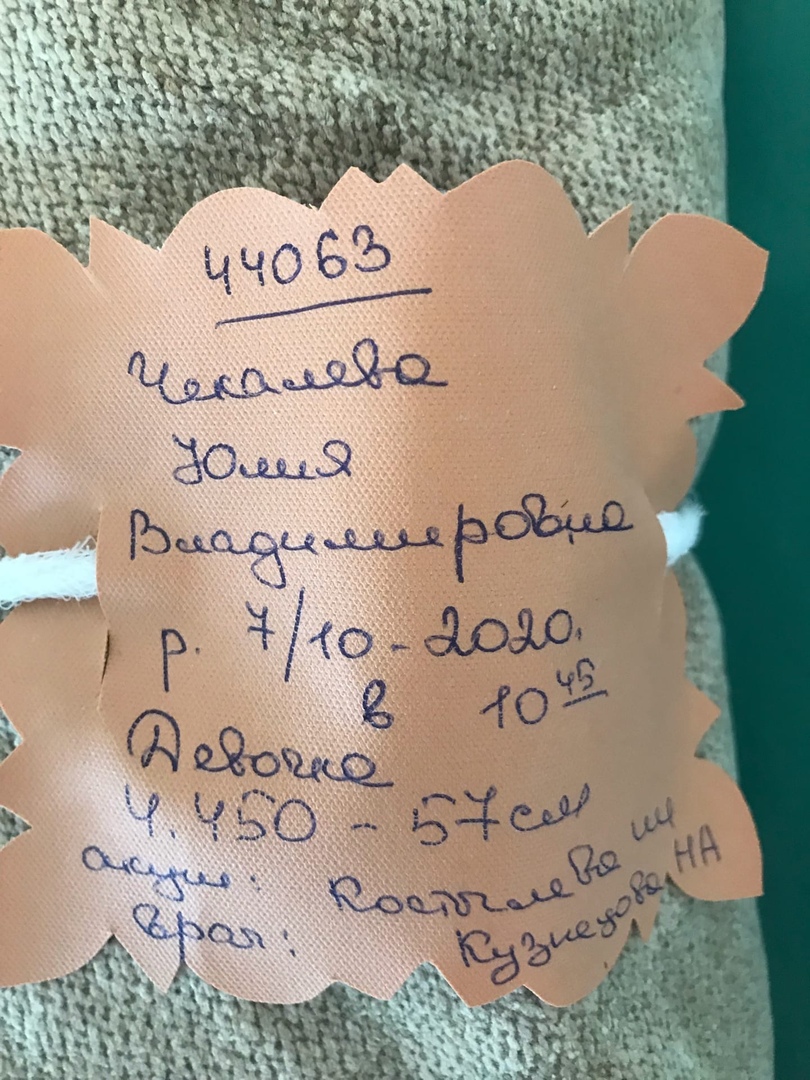 44063
Чекалева
Юлия
Владимировна
р. 7/10-2020.
в 10 45
Девочка
4.450 - 57см
акуш: Костылева ИИ
врач: Кузнецова НА